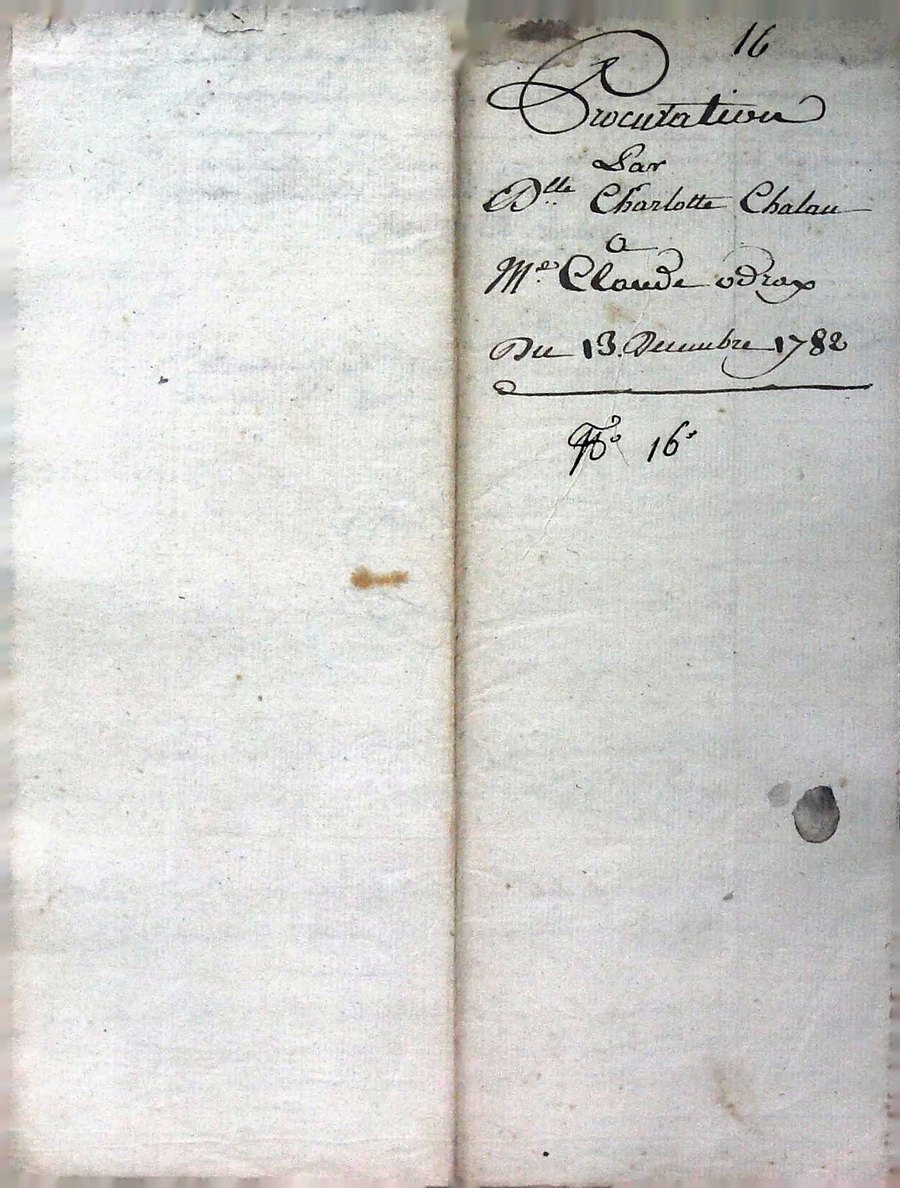 16
Procuration
Par
Dlle Charlotte Chalau
a
Me Claude odrox
Du 13. Decembre 1782
No 16.